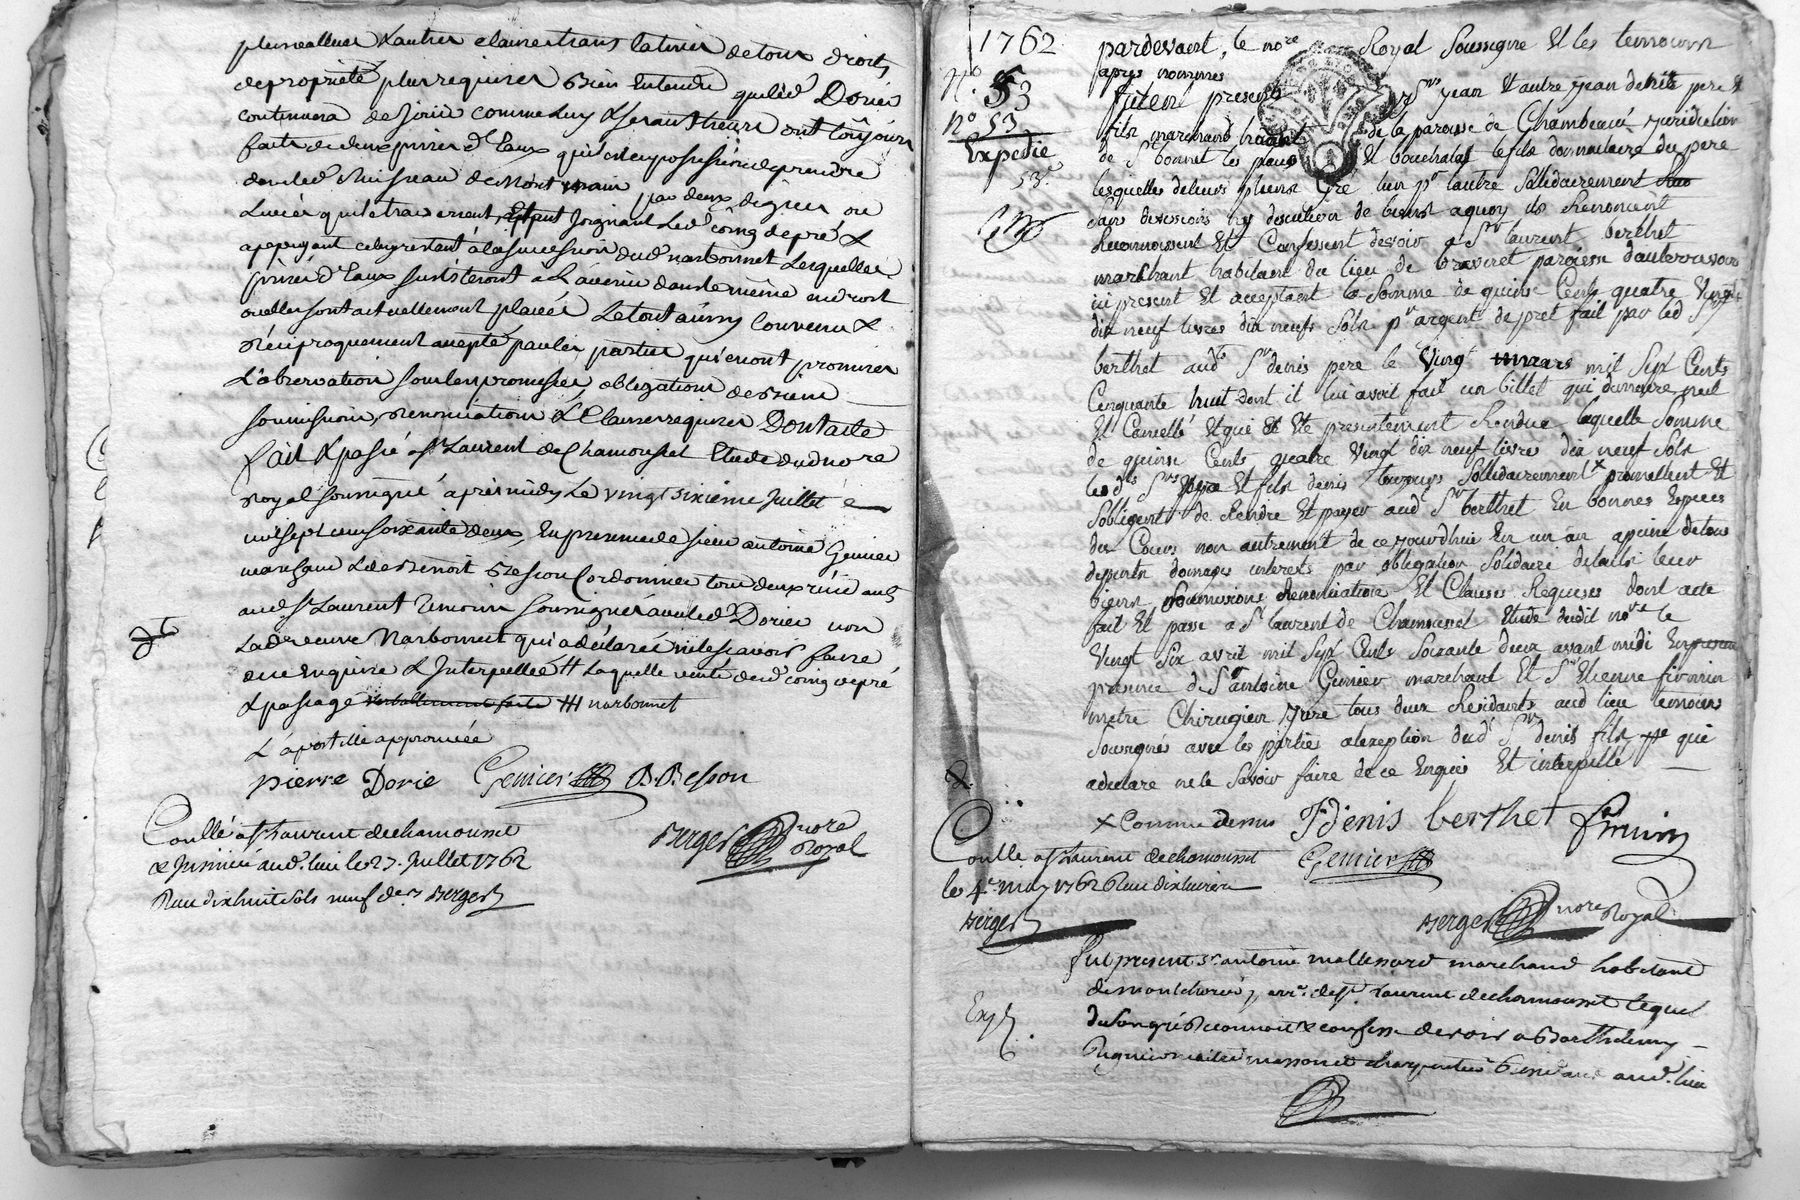 plusvalleur & autres clauses translatives de tous droits
de propriété plus requises Bien Entendu queled Dorier
continuera de jouir comme luy & ses autheurs ont toûjours
fait de deux prises d'Eaux qu'il est en possession de prendre
dans led Ruisseau de Mont par deux digues ou
Lurés qui le traversent, Etant Joignant Led coing de pré &
appuyant celuy restant à la succession dud narbonnet Lesquelles
prises d'Eaux subsisteront a L'avenir dans le même endroit
ou elles sont actuellement placées Le tout ainsy convenu &
réciproquement accepté par les parties qui en ont promis
L'observation sous les promesses, obligations de biens
soumissions, renonciations & Clauses requises Dont acte
fait & passé a St Laurent de Chamousset Etude dud no re
royal soussigné après midy Le vingt sixieme Juillet
mil sept cent soixante deux, En presence de sieur antoine Genier
marchand & de Benoit Besson Cordonnier tous deux résidants
aud St Laurent Temoins soussignés avec led Dorier non
La de veuve Narbonnet qui a déclaré ne le scavoir faire
de ce Enquise & Interpellée # Laquelle vente dud coing de pré
& passage verballement faite ## narbonnet
L'apostille approuvée
pierre Dorie Genier B Besson
Coullé a St Laurent de chamousset
& Insinué aud. lieu le 27. Juillet 1762
Reçu dix huit sols neuf ders Berger
Berger nore Royal
1762
No. 53
no 53
Expedié
53.
pardevant, le nore Royal Soussigné Et les temoins
apres nommés
furent presents Srs jean & autre jean denis pere &
fils marchands habitants de la paroisse de Chambeau juridiction
de St bonnet les places Et bouchalat le fils donnataire du pere
lesquelles de leurs pleins Gré l'un pr l'autre sollidairement
sans division ny discution de biens a quoy ils Renoncent
Reconnoissent Et Confessent devoir a Sr laurent berthet
marchant habitant du lieu de braviret paroisse d'auterrivoire
ici present Et acceptant la Somme de quinse Cents quatre Vingt
dix neuf livres dix neufs Sols pr argent de pret fait par led Sr
berthet aud Sr denis pere le Vingt mars mil Sept Cents
Cinquante huit dont il lui avoit fait un billet qui demeure nul
Et Cancellé Et qui Et Eté presentement Rendue laquelle Somme
de quinse Cents quatre Vingt dix neuf livres dix neuf Sols
lesds Srs pere Et fils denis toujours Sollidairement x promettent Et
S'obligent de Rendre Et payer aud Sr berthet En bonnes Especes
du Cours non autrement de ce jourdhui En un an appeine de tous
depents domages interets par obligation Solidaire de tails leur
biens Soumissions Renonciations Et Clauses Requises dont acte
fait Et passé a St laurent de Chamousset Etude dudit nore le
Vingt Six avril mil Sept Cents Soixante deux avant midi En presence
presence de Sr antoine Genier marchant Et Sr Etienne firmin
metre Chirugien juré tous deux Residants aud lieu temoins
Soussignés avec les parties alexeption dudt Sr denis fils que
a declare ne le Savoir faire de ce Enquis Et interpellé
x Comme dessus J denis berthet firmin
Coullé a St Laurent de chamousset Genier
le 4e may 1762 Reçu dix livres
Berger
Berger nore Royal
fut present Sr. antoine mallessard marchand habitant
de montchervé, arre. de St. Laurent de chamousset lequel
Exp.
de Son gré Reconnoit & confesse devoir a Barthelemy
Pugnier maitre masson et charpentier Residant aud. lieu